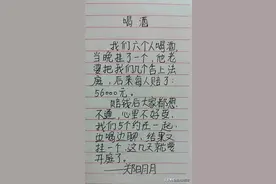 喝酒
我们六个人喝酒,
当晚挂了一个,他老
婆把我们几个告上法
庭,后来每人赔了:
56000元。
赔钱后大家都想
不通,心里不好受,
我们5个约在一起,
边喝边聊,结果又
挂一个,这几天就要
开庭了。
——郑阳月月